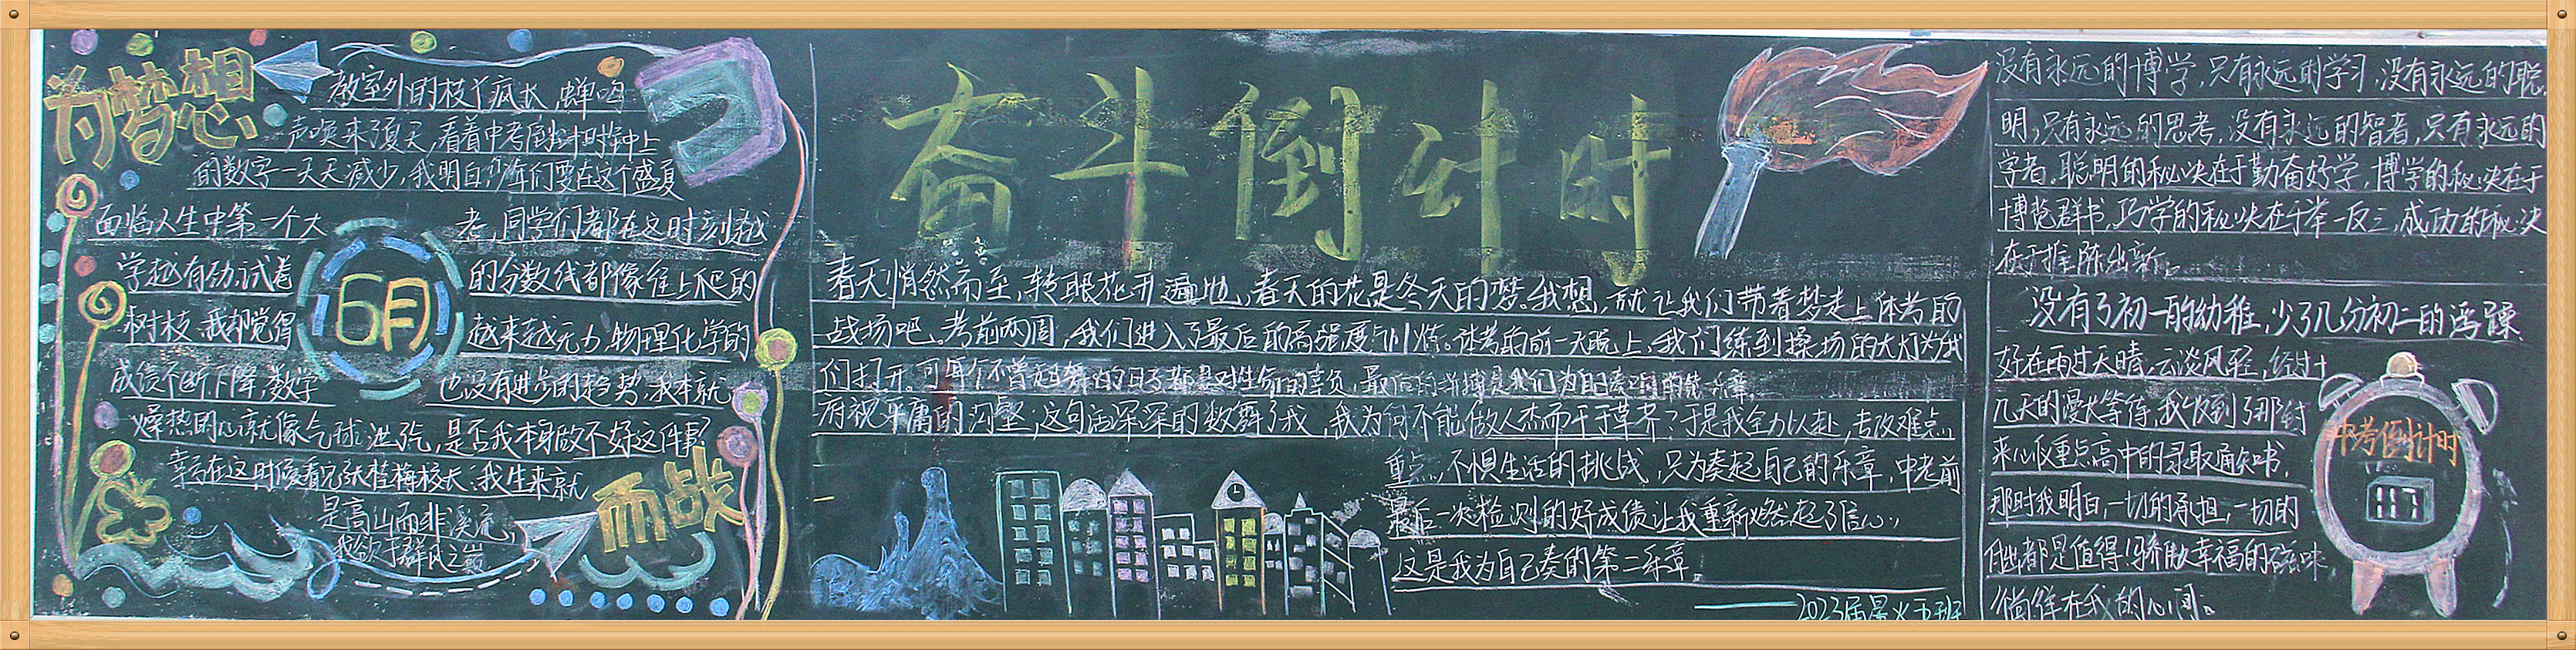 为梦想
教室外的枝丫疯长,蝉鸣
声唤来了夏天,看着中考倒计时
的数字一天天减少,我明白,少年们要在这个盛夏
面临人生中第一个大
考,同学们都在这时刻越
学越有劲,试卷
的分数线都像往上爬的
树枝,我却觉得
越来越无力,物理化学的
成绩不断下降,数学
也没有进步的趋势,我本就
燥热的心就像气球泄了气,是否我本身做不好这件事?
幸与在这时候看见张桂梅校长:我生来就
是高山而非溪流,
我欲于群风之巅
而战
6月
奋斗倒计时
春天悄然而至,转眼花开遍地,春天的花是冬天的梦。我想,就让我们带着梦走上体考的
战场吧。考前两周,我们进入了最后的高强度训练。体考的前一天晚上,我们练到操场的大灯为我
们打开。可每个不曾起舞的日子都是对生命的辜负,最后的
府视平庸的沟壑,这句话深深的数舞了我,我为何不能做人杰而干于草芥?于是我全力以赴,去攻难点
重点,不惧生活的挑战,只为奏起自己的乐章,中考前
最后一次检测的好成绩让我重新燃起了信心。
这是我为自己奏的第二乐章
2023届星火五班
没有永远的博学,只有永远的学习,没有永远的聪
明,只有永远的思考,没有永远的智者,只有永远的
学者。聪明的秘诀在于勤奋好学,博学的秘诀在于
博览群书,巧学的秘诀在于举一反三,成功的秘诀
在于推陈出新。
没有了初一的幼稚,少了几分初二的浮躁
好在雨过天晴,云淡风轻,经过十
几天的漫长等待,我收到了那封
来心仪重点高中的录取通知书,
那时我明白,一切的承担,一切的
付出都是值得!骄傲幸福的滋味
徜徉在我的心间。
中考倒计时
117